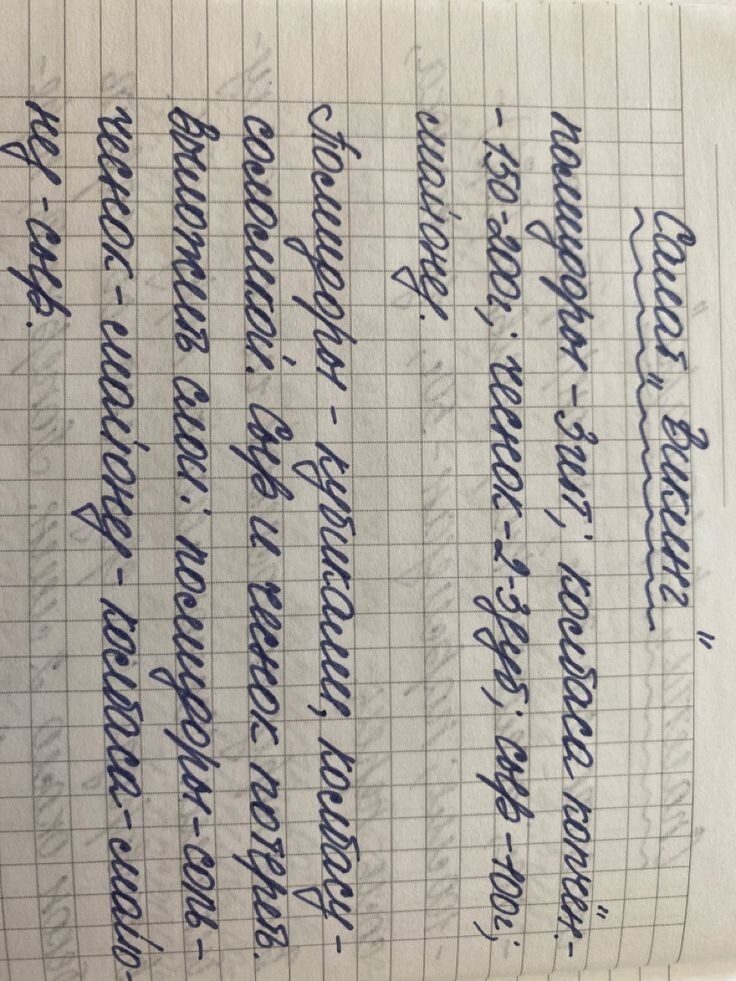 Салат „Викинг"
помидоры - 3 шт; колбаса копчён. -
- 150-200г; чеснок - 2-3 зуб; сыр - 100г;
майонез.
Помидоры - кубиками, колбасу -
соломкой. Сыр и чеснок потереть.
Выложить слои: помидоры - соль -
чеснок - майонез - колбаса - майо-
нез - сыр.